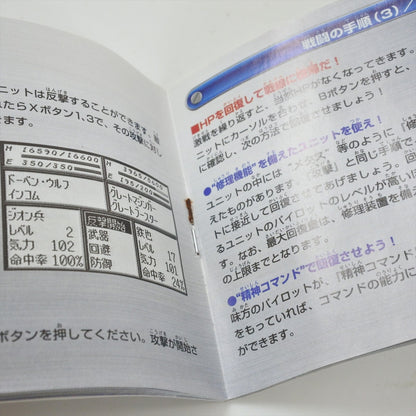 ニットは反撃することができます。
たらXボタン1,3で、その攻撃に対し
H 16590/16600
E 350/350
ドーベン・ウルフ
インコム
グレートマジンガー
グレートブースター
ジオン兵
レベル 2
気力 102
命中率 100%
反撃開始
武器
回避
防御
鉄也
レベル 17
気力 101
命中率 24%
ボタンを押してください。攻撃が開始さ
戦闘の手順(3)/
■HPを回復して戦線に
激戦を繰り返すと、当然HPがなくなってきます。
ニットにカーソルを合わせ、Bボタンを押すと、
に確認し、次の方法で回復させましょう!
●"修理機能"を備えたユニットを使え!
ユニットの中には
えたものがあります。《攻撃》と同じ手順で、
トに接近して回復させてあげましょう。
るユニットのパイロットのレベルが高いほ
す。なお、最大回復量は、修理装置を備
の上限までとなります。
●"精神コマンド"で回復させよう!
味方のパイロットが、「精神コマンド
をもっていれば、コマンドの能力に
ができます。